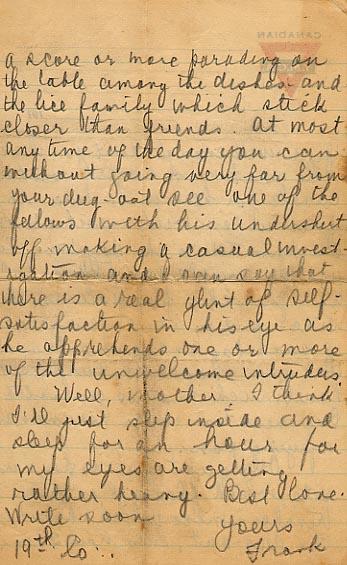 CANADIAN
a score or more parading on
the table among the dishes and
the lice family which stick
closer than friends. At most
any time of the day you can
without going very far from
your dug-out see one of the
fellows with his undershirt
off making a casual invest-
igation and I even say that
there is a real glint of self-
satisfaction in his eye as
he apprehends one or more
of the unwelcome intruders.
Well, mother I think
I'll just slip inside and
sleep for an hour for
my eyes are getting
rather heavy. Best love.
Write soon yours
19th Co... Frank